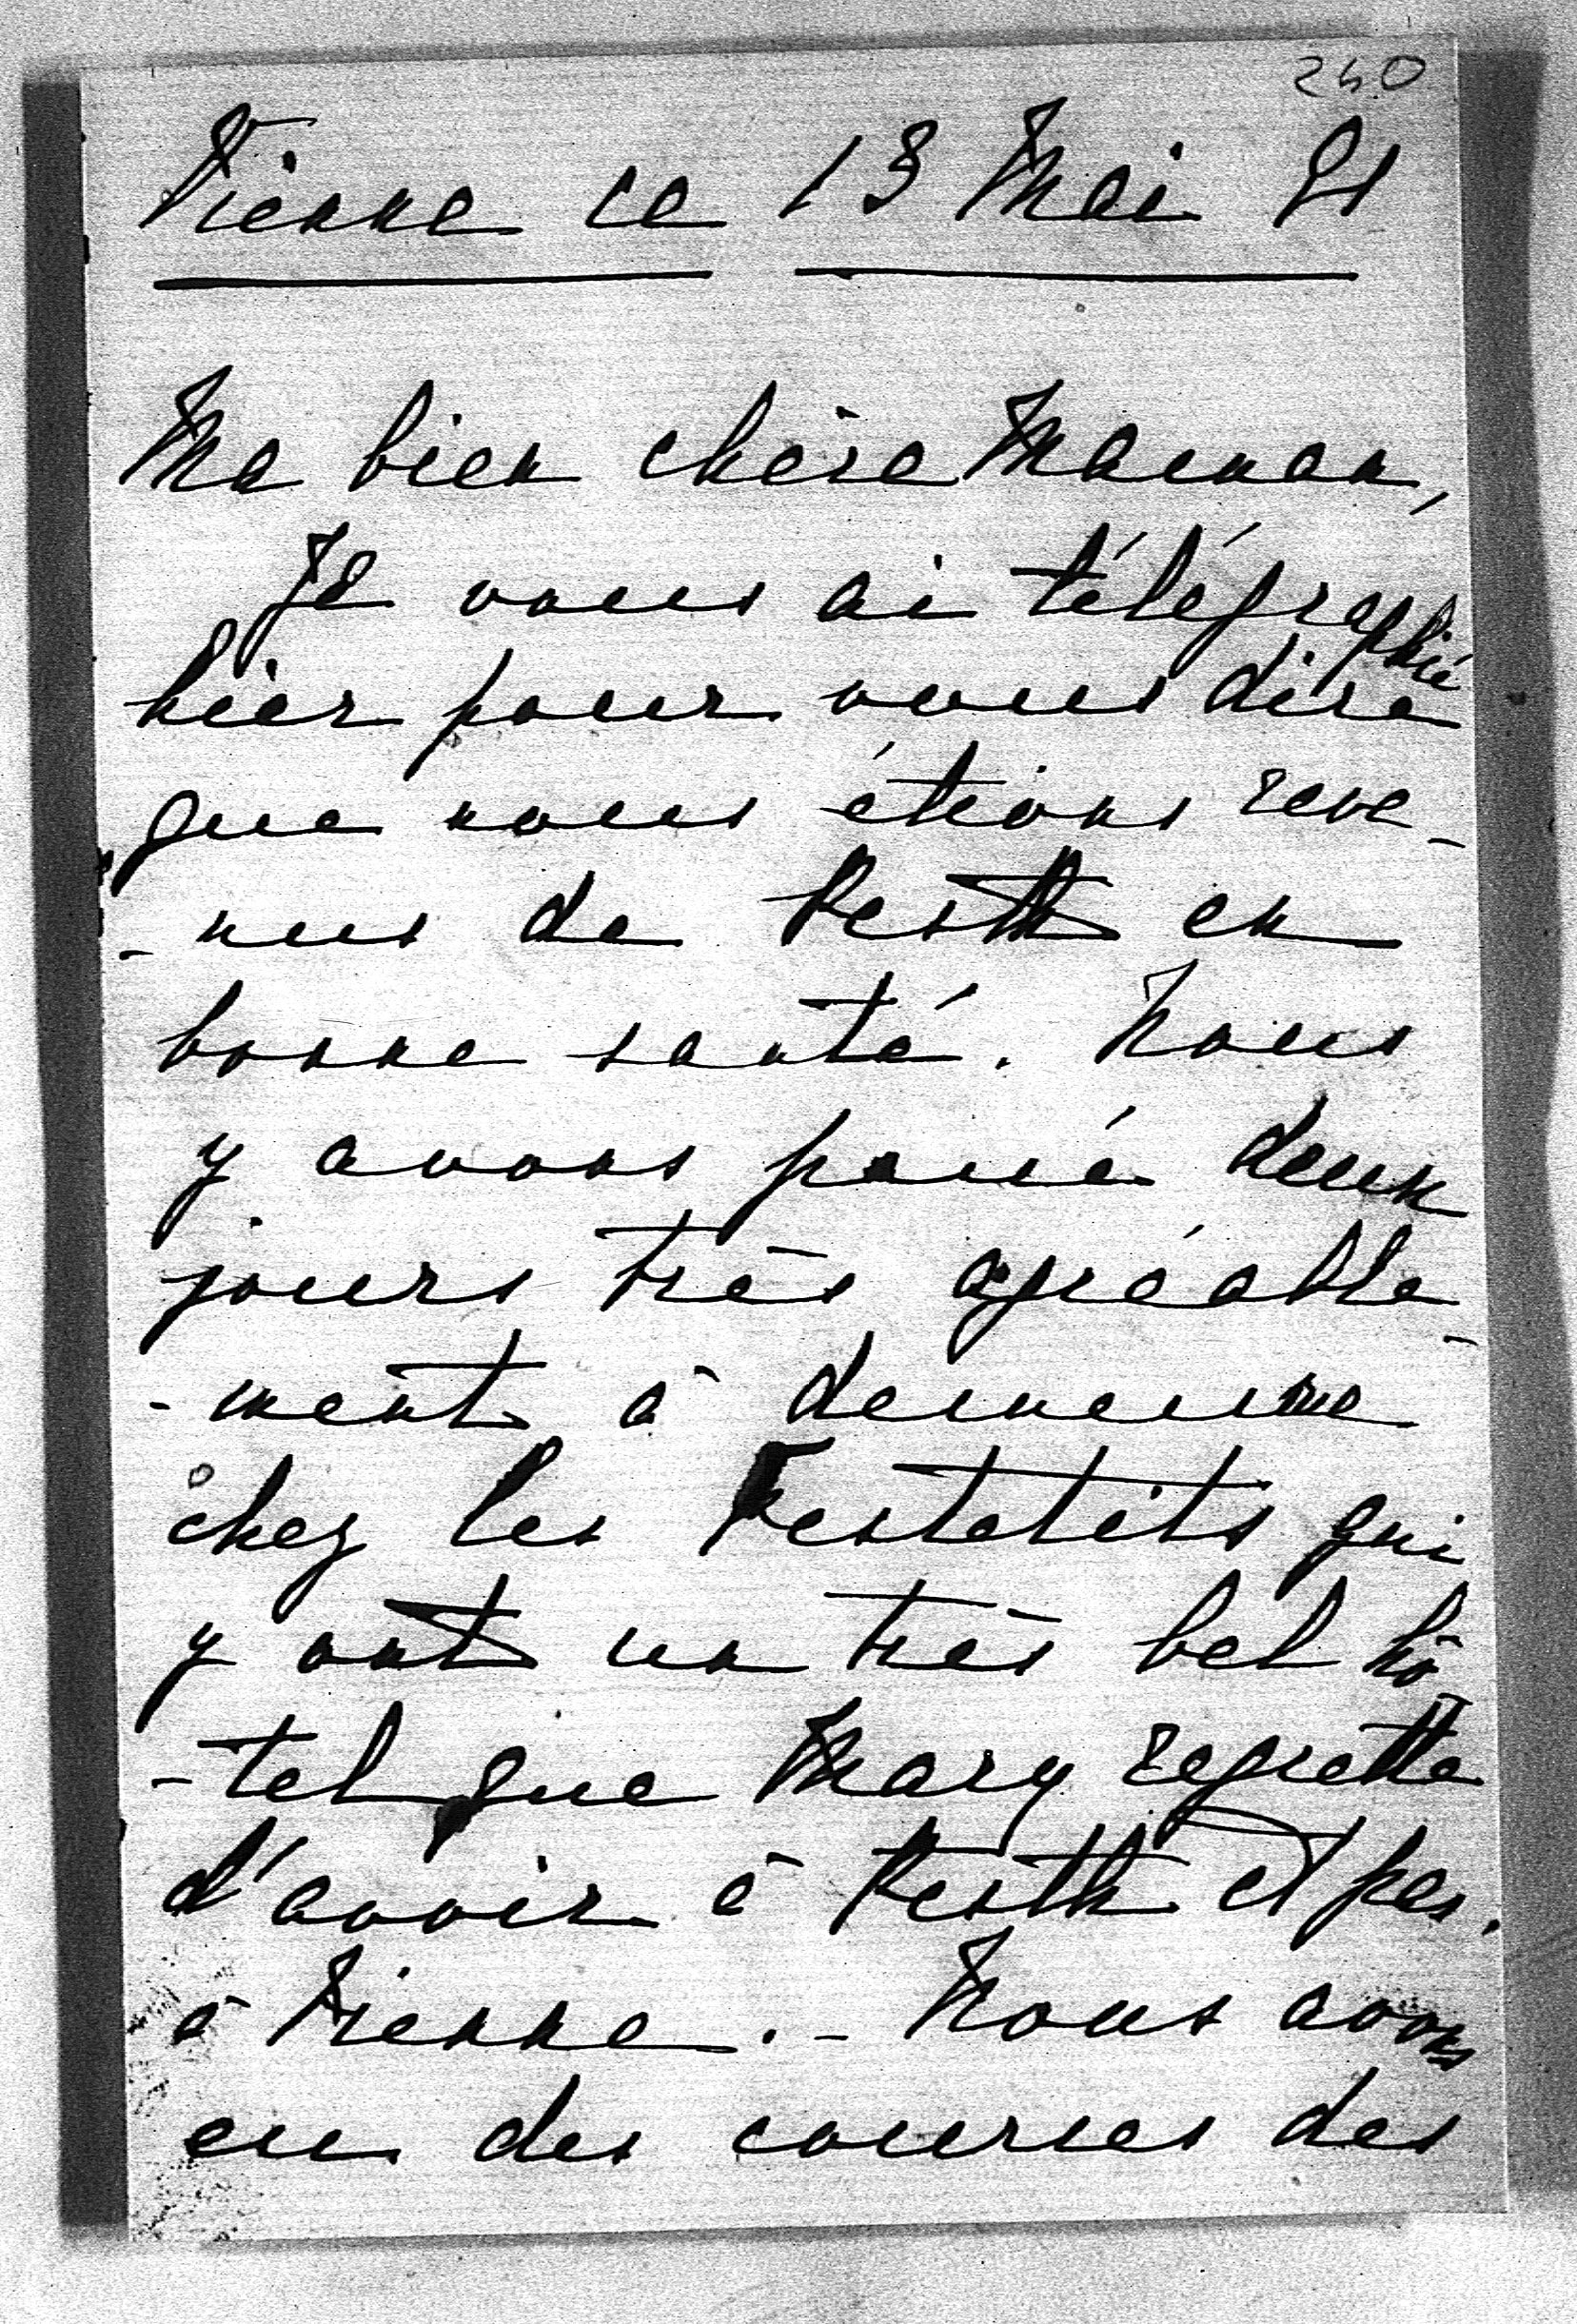 260
Vienne ce 13 Mai 91
Ma bien chère Maman,
Je vous ai télégraphié
hier pour vous dire
que nous étions reve-
-nus de Pesth en
bonne santé. Nous
y avons passé deux
jours très agréable-
-ment à demeure
chez les Festetits qui
y ont un très bel hô-
-tel que Mary regrette
d'avoir à Pesth et pas
à Vienne. - Nous avons
eu des courses des